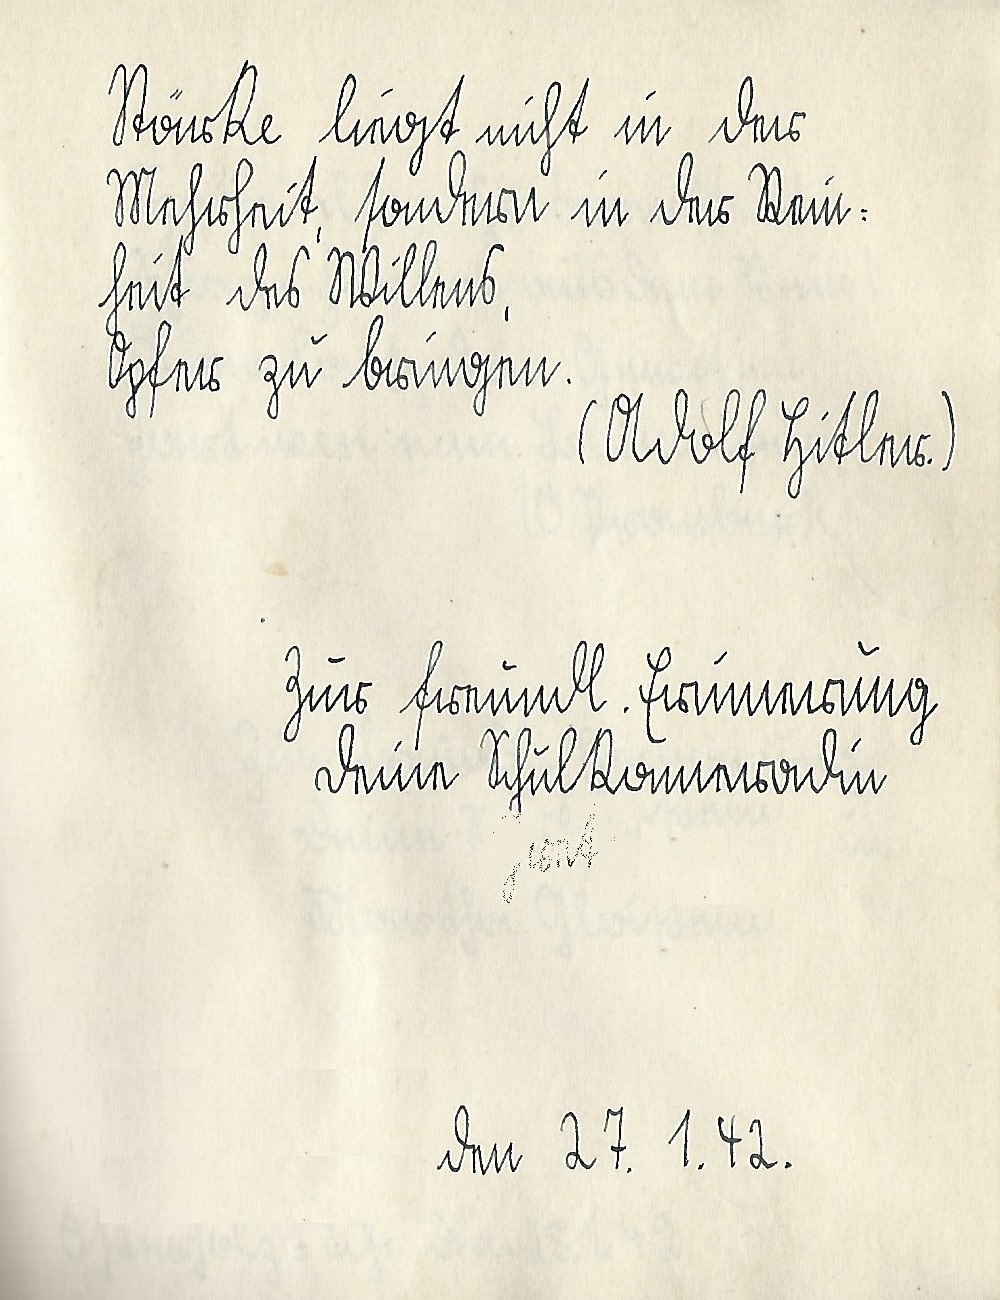 Stärke liegt nicht in der
Mehrheit, sondern in der Rein:
heit des Willens,
Opfer zu bringen.
(Adolf Hitler.)
Zur freundl. Erinnerung
deine Schulkameradin
den 27. 1. 42.